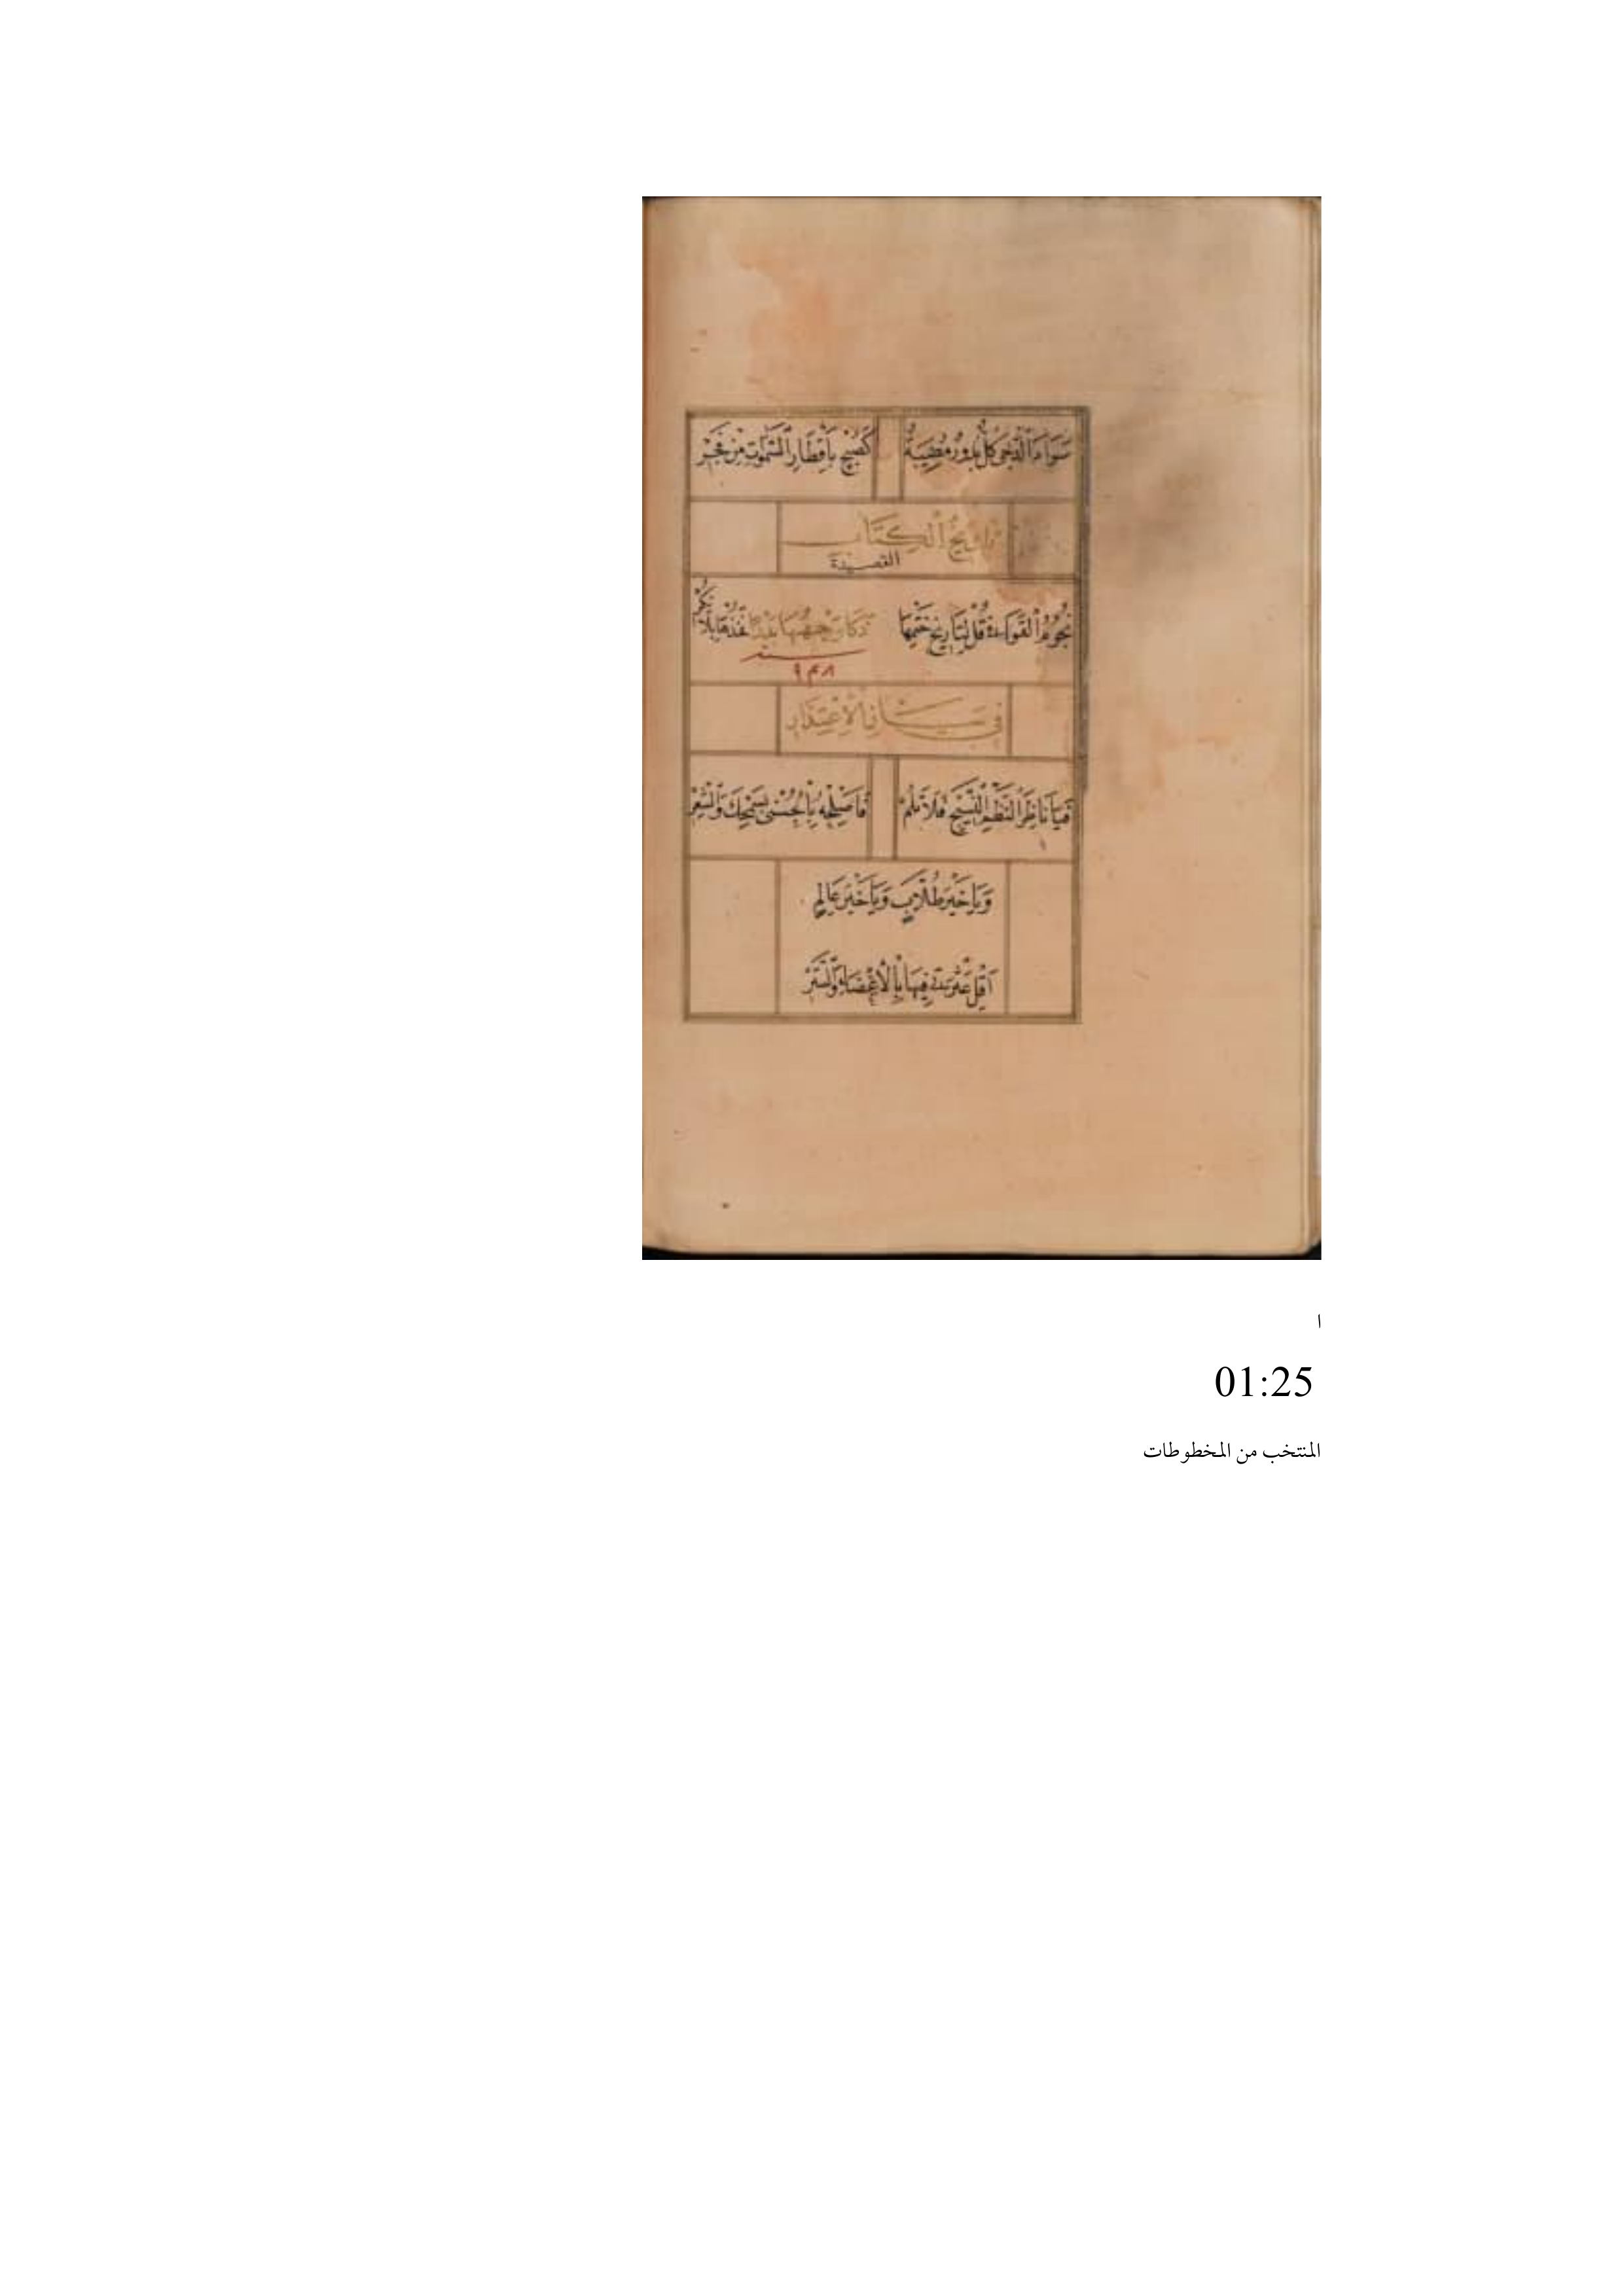 سَوَاءَ الدُّجَى كُلٌّ بُدُورٌ مُضِيئَةٌ كَصُبْحٍ بِأَقْطَارِ السَّمٰوَاتِ مِنْ فَجْرِ
تَارِيخُ الْكِتَابِ
القصيدة
نُجُومُ الْقَوَافِي قُلْ لِتَارِيخِ خَتْمِهَا ذَكَا وَجْهُهَا فَخُذْهَا بِلَا نُكْرِ
سنه
٩٣٨
فِي بَيَانِ الْاِعْتِذَارِ
فَيَا نَاظِرَ النَّظْمِ فَلَا تَلُمْ فَاَصْلِحْهُ بِالْحُسْنَى وَالشِّعْرِ
وَيَا خَيْرَ طُلَّابٍ وَيَا خَيْرَ عَالِمٍ
اَقِلْ عَثْرَتِى فِيهَا بِالْاِغْضَاءِ وَالسَّتْرِ
ا
01:25
المنتخب من المخطوطات